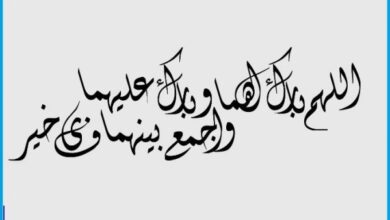 اللهم بارك لهما وبارك عليهما
واجمع بينهما في خير